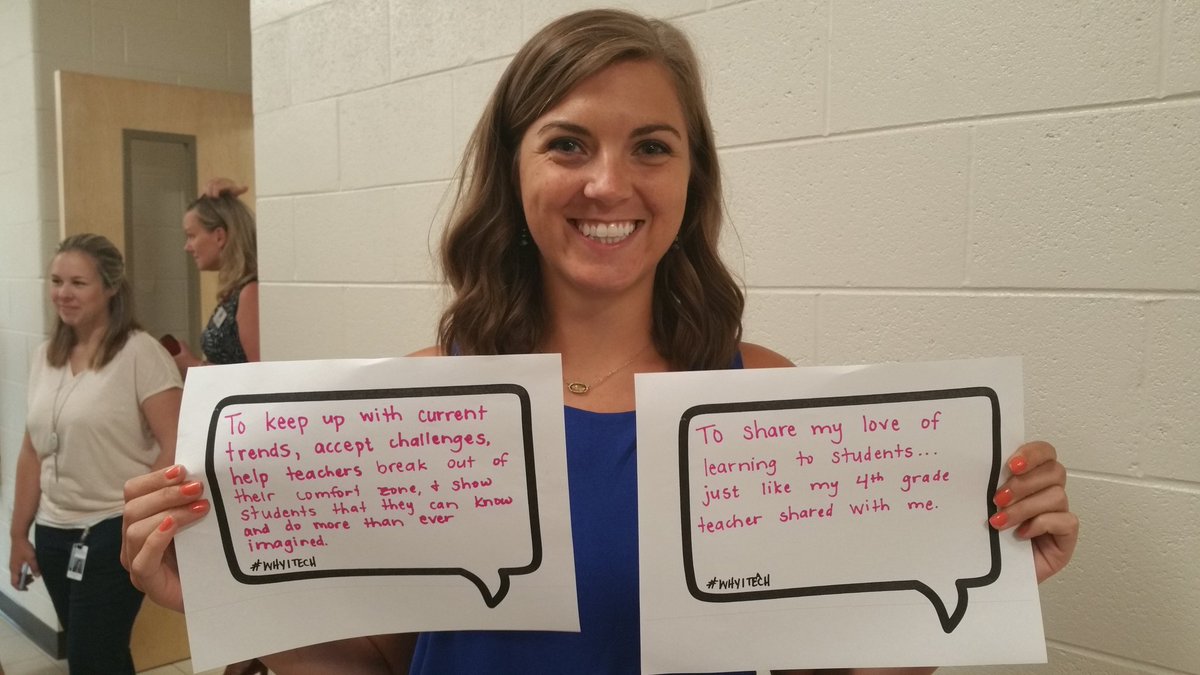 To keep up with current
trends, accept challenges,
help teachers break out of
their comfort zone, & show
students that they can know
and do more than ever
imagined.
#WHYITECH
To share my love of
learning to students...
just like my 4th grade
teacher shared with me.
#WHYITECH